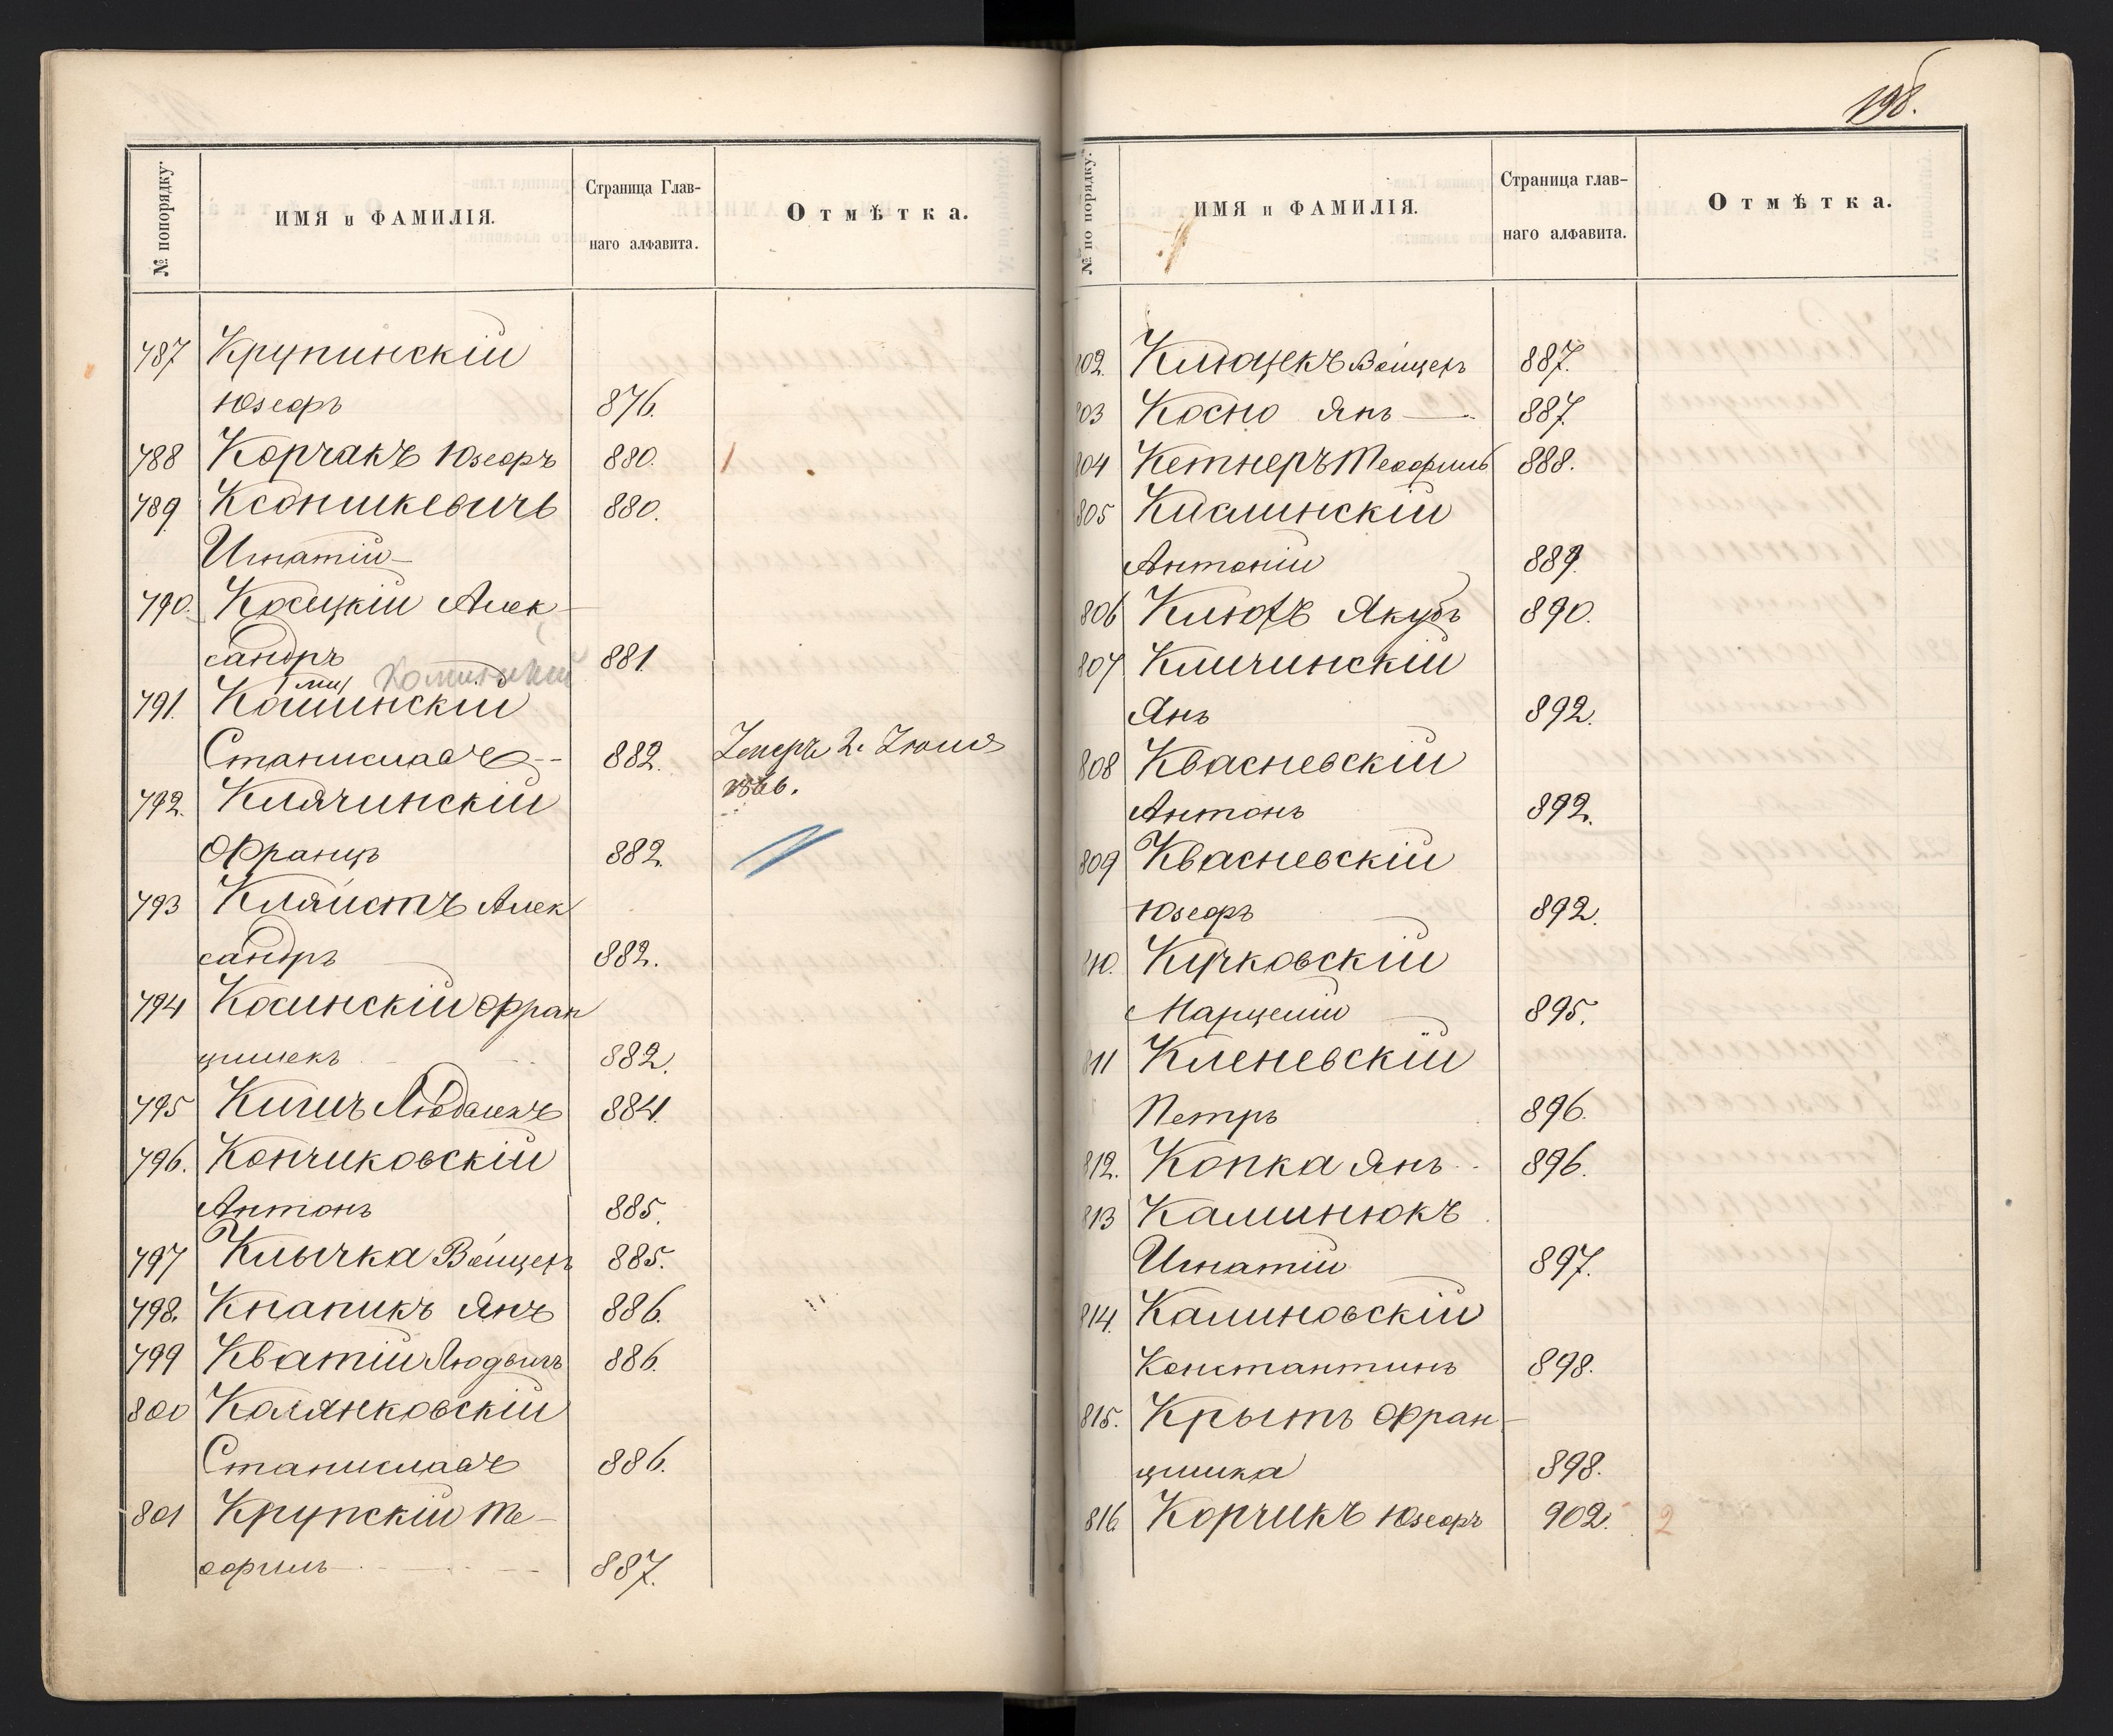 № попорядку.
ИМЯ и ФАМИЛІЯ.
Страница Глав-
наго алфавита.
Отмѣтка.
787 Крупинскій
Юзефъ 876.
788 Корчакъ Юзефъ 880.
789 Ксоншкевичъ 880.
Игнатій
790. Косицкій Алек-
сандръ 881.
791. Кашинскій
Станиславъ 882. Умеръ 2. Іюля
1866.
792. Клячинскій
Францъ 882.
793 Кляйстъ Алек
сандръ 882.
794 Косинскій Фран
цишекъ 882.
795 884.
796. Кончиковскій
Антонъ 885.
797 Клычка Войцехъ 885.
798. Кнапикъ Янъ 886.
799 Кватій Людвигъ 886.
800 Колянковскій
Станиславъ 886.
801 Крупскій Те-
офиль 887.
198.
№ по порядку.
ИМЯ и ФАМИЛІЯ.
Страница глав-
наго алфавита.
Отмѣтка.
802. Клюцекъ Войцехъ 887.
803 Косно Янъ 887.
804 Кетнеръ Теофиль 888.
805 Кислинскій
Антоній 889.
806 Якубъ 890.
807 Кличинскій
Янъ 892.
808 Квасневскій
Антонъ 892.
809 Квасневскій
Юзефъ 892.
810. Кучковскій
Марцелій 895.
811 Кленевскій
Петръ 896.
812. Копка Янъ 896.
813 Калинюкъ
Игнатій 897.
814. Калиновскій
Константинъ 898.
815. Крытъ Фран-
цишка 898.
816 Корчикъ Юзефъ 902. 2